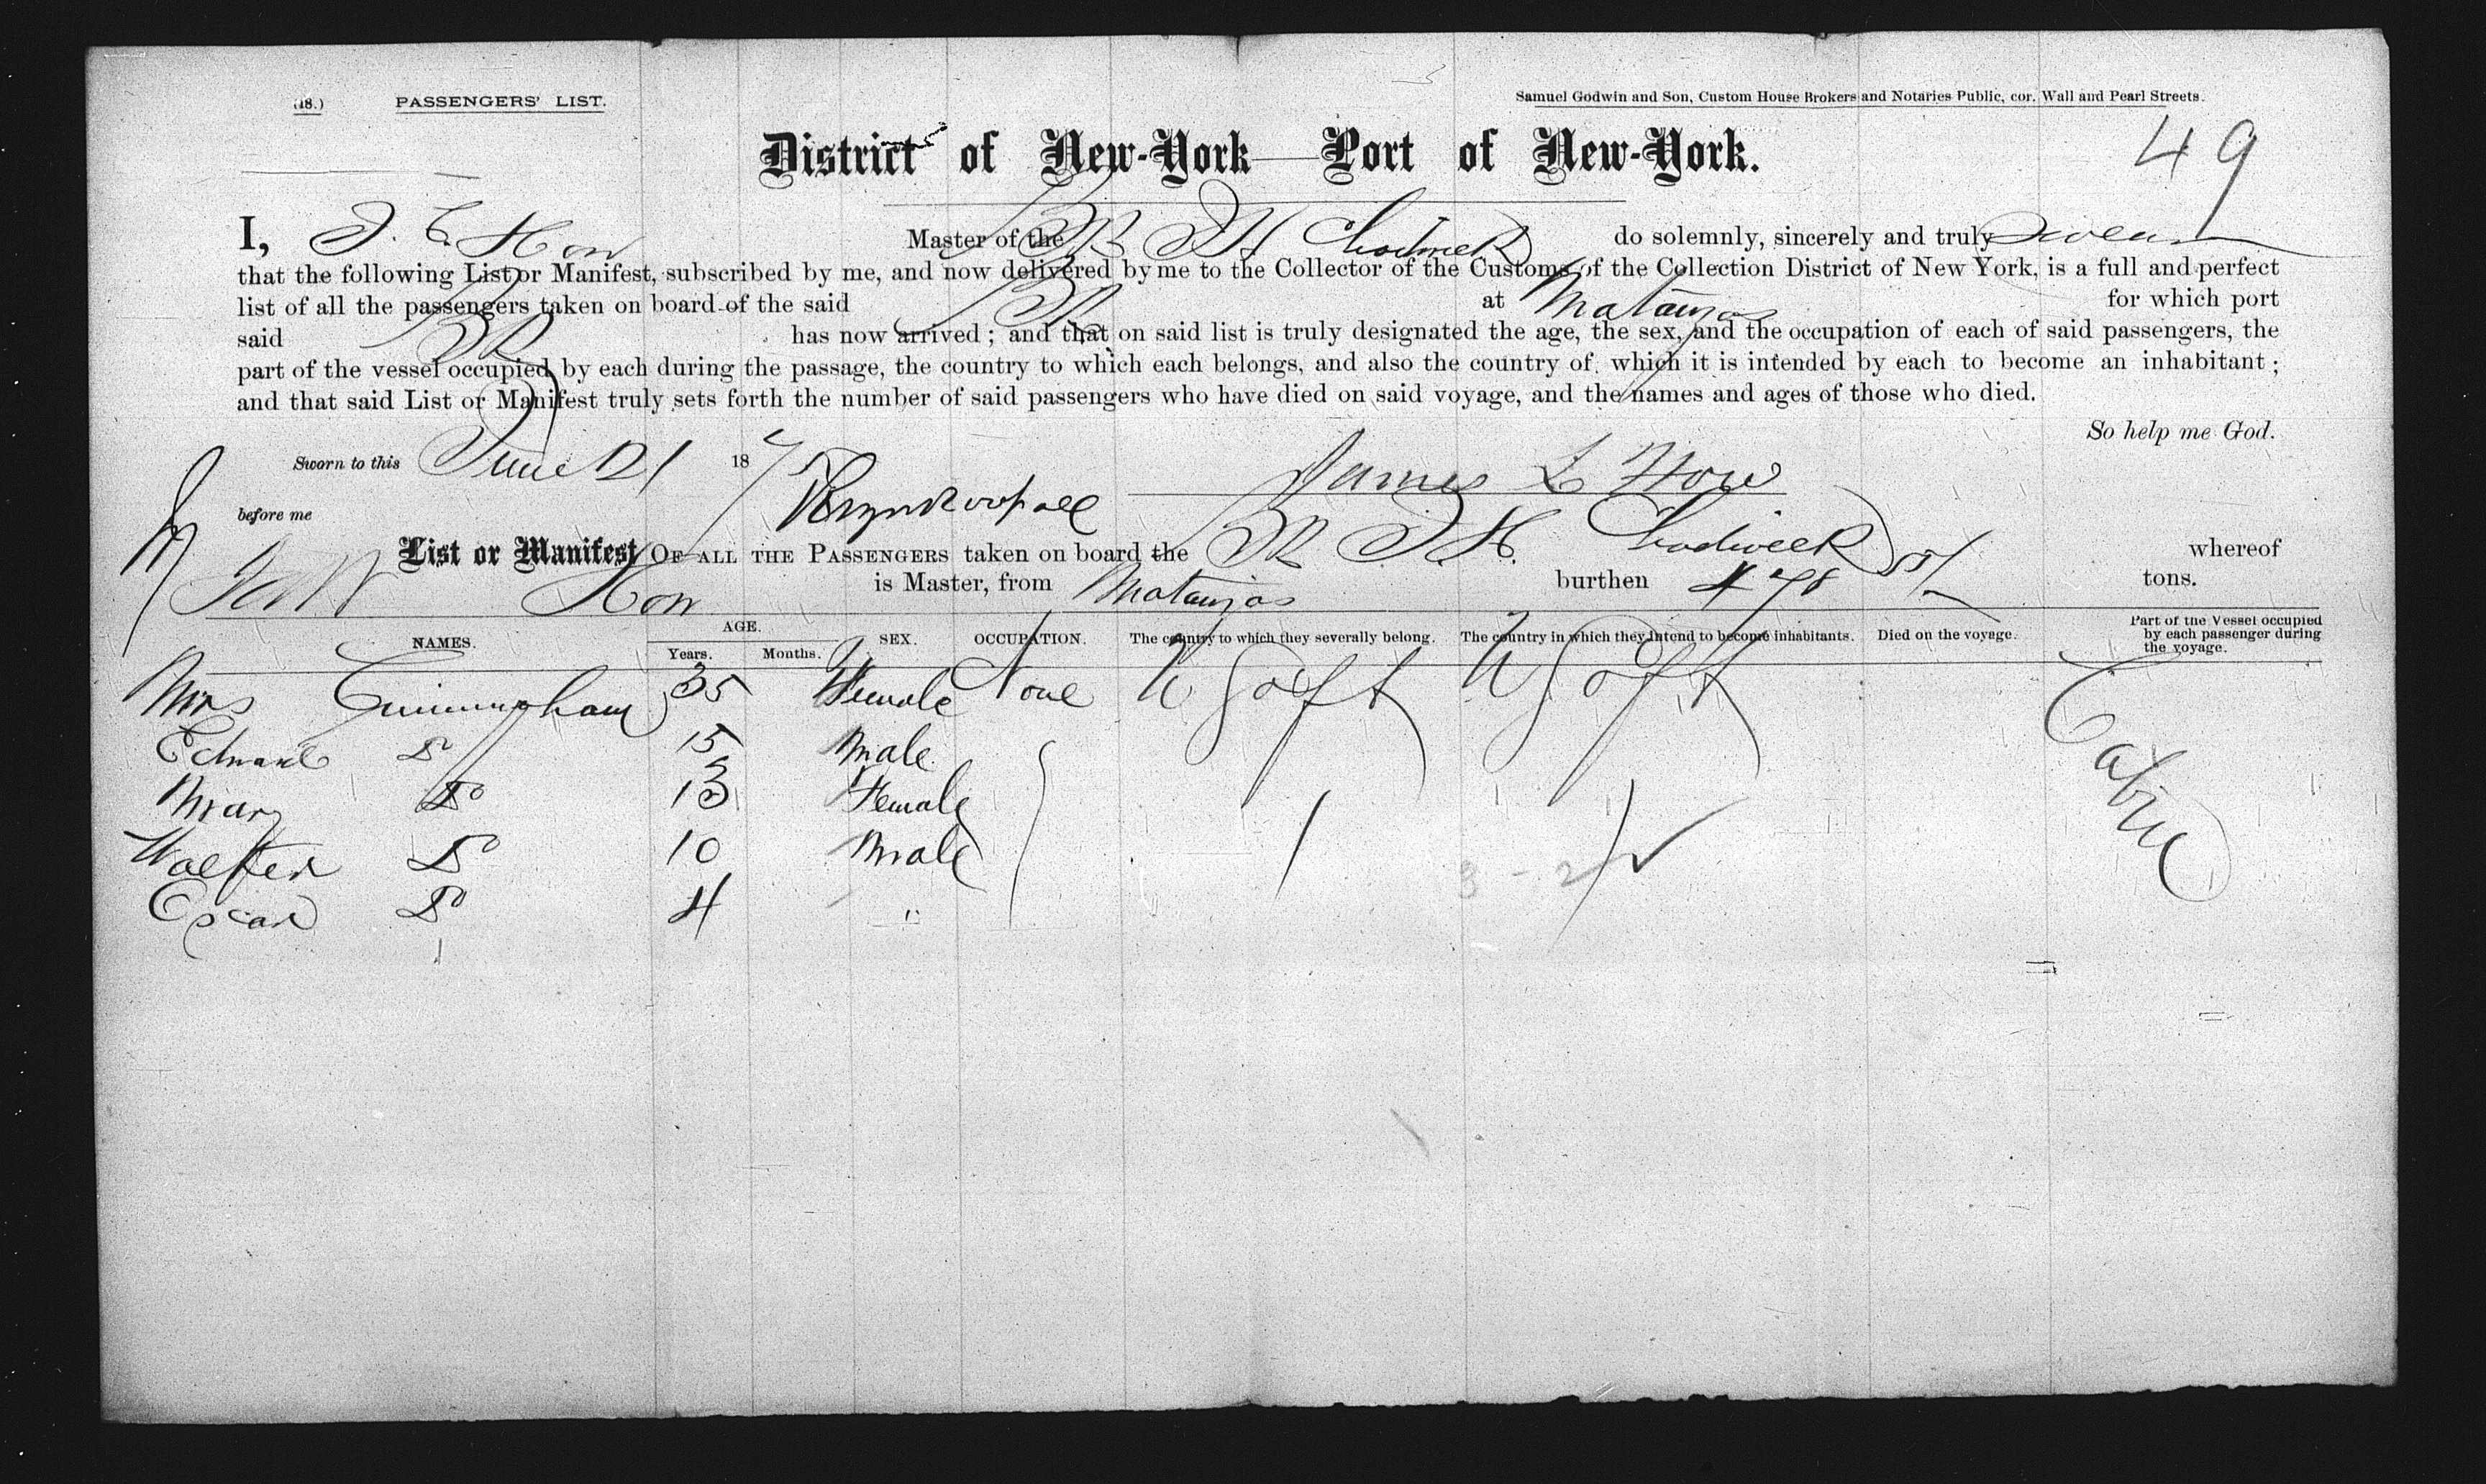 (18.) PASSENGERS' LIST. Samuel Godwin and Son, Custom House Brokers and Notaries Public, cor. Wall and Pearl Streets.
49
District of New-York — Port of New-York.
I, How Master of the BR J H Chadwick do solemnly, sincerely and truly swear
that the following List or Manifest, subscribed by me, and now delivered by me to the Collector of the Customs of the Collection District of New York, is a full and perfect
list of all the passengers taken on board of the said BR at Matanzas for which port
said BR has now arrived; and that on said list is truly designated the age, the sex, and the occupation of each of said passengers, the
part of the vessel occupied by each during the passage, the country to which each belongs, and also the country of which it is intended by each to become an inhabitant;
and that said List or Manifest truly sets forth the number of said passengers who have died on said voyage, and the names and ages of those who died.
So help me God.
Sworn to this June 21 1875 James L How
before me
List or Manifest OF ALL THE PASSENGERS taken on board the BR J. H. Chadwick whereof
How is Master, from Matanzas burthen 478 tons.
NAMES. AGE. Years. Months. SEX. OCCUPATION. The country to which they severally belong. The country in which they intend to become inhabitants. Died on the voyage. Part of the Vessel occupied by each passenger during the voyage.
Mrs Cunningham 35 Female None Cabin
Edward Do 15 Male
Mary Do 13 Female
Walter Do 10 Male
Oscar Do 4 "
3 - 2